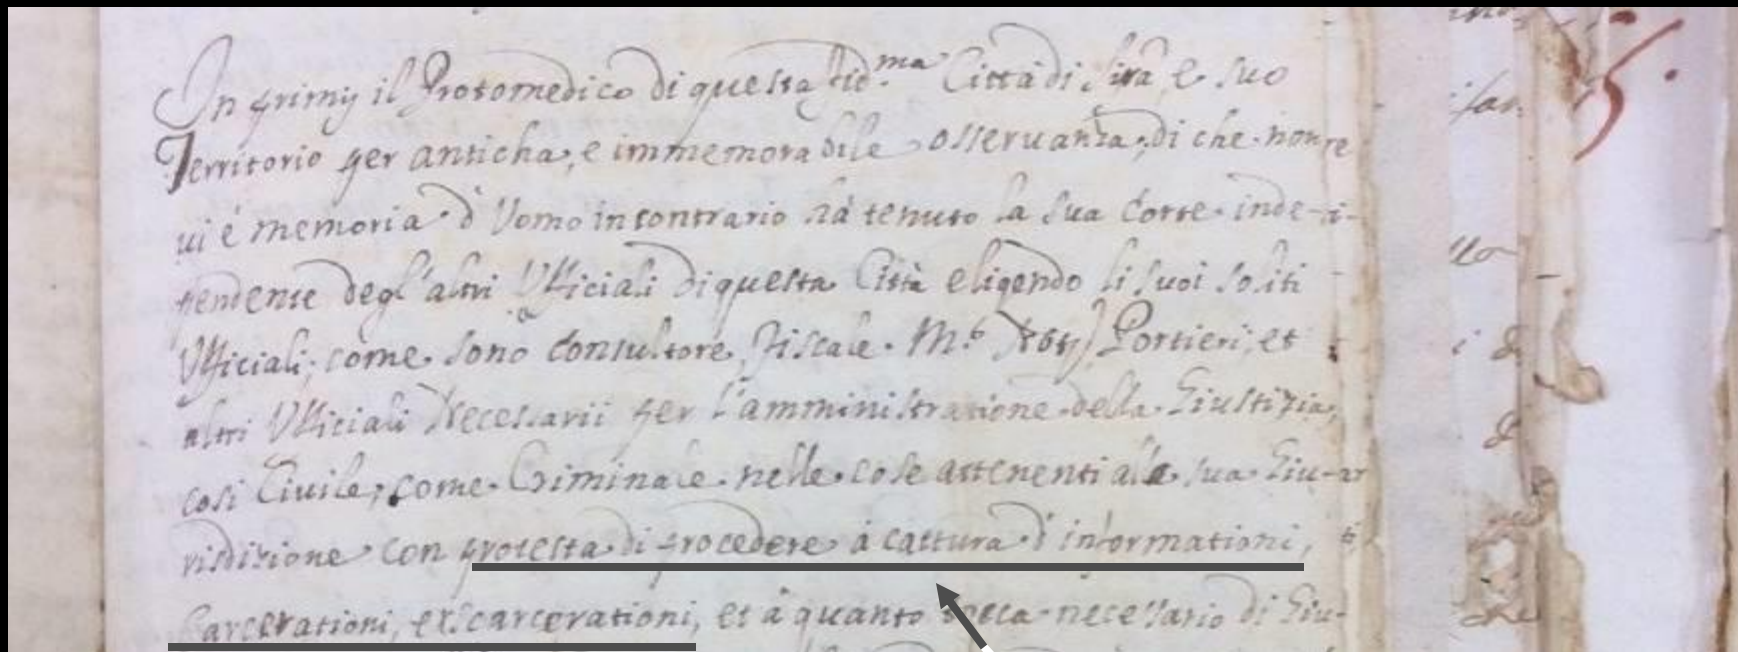 In primis il Protomedico di questa fid.ma Città di e suo
Territorio per anticha, e immemorabile osservanza, di che non
vi é memoria d'Uomo in contrario há tenuto la sua Corte inde-
pendente degl'altri Ufficiali di questa Città eligendo li suoi soliti
Ufficiali, come sono Consultore, Fiscale M.o Portieri, et
altri Ufficiali Necessarii per l'amministratione della Giustizia,
così Civile, come Criminale nelle cose attenenti alla sua Giu-
risdizione con protesta di procedere à cattura d'informationi,
Carcerationi, exscarcerationi, et à quanto necessario di Giu-
5.